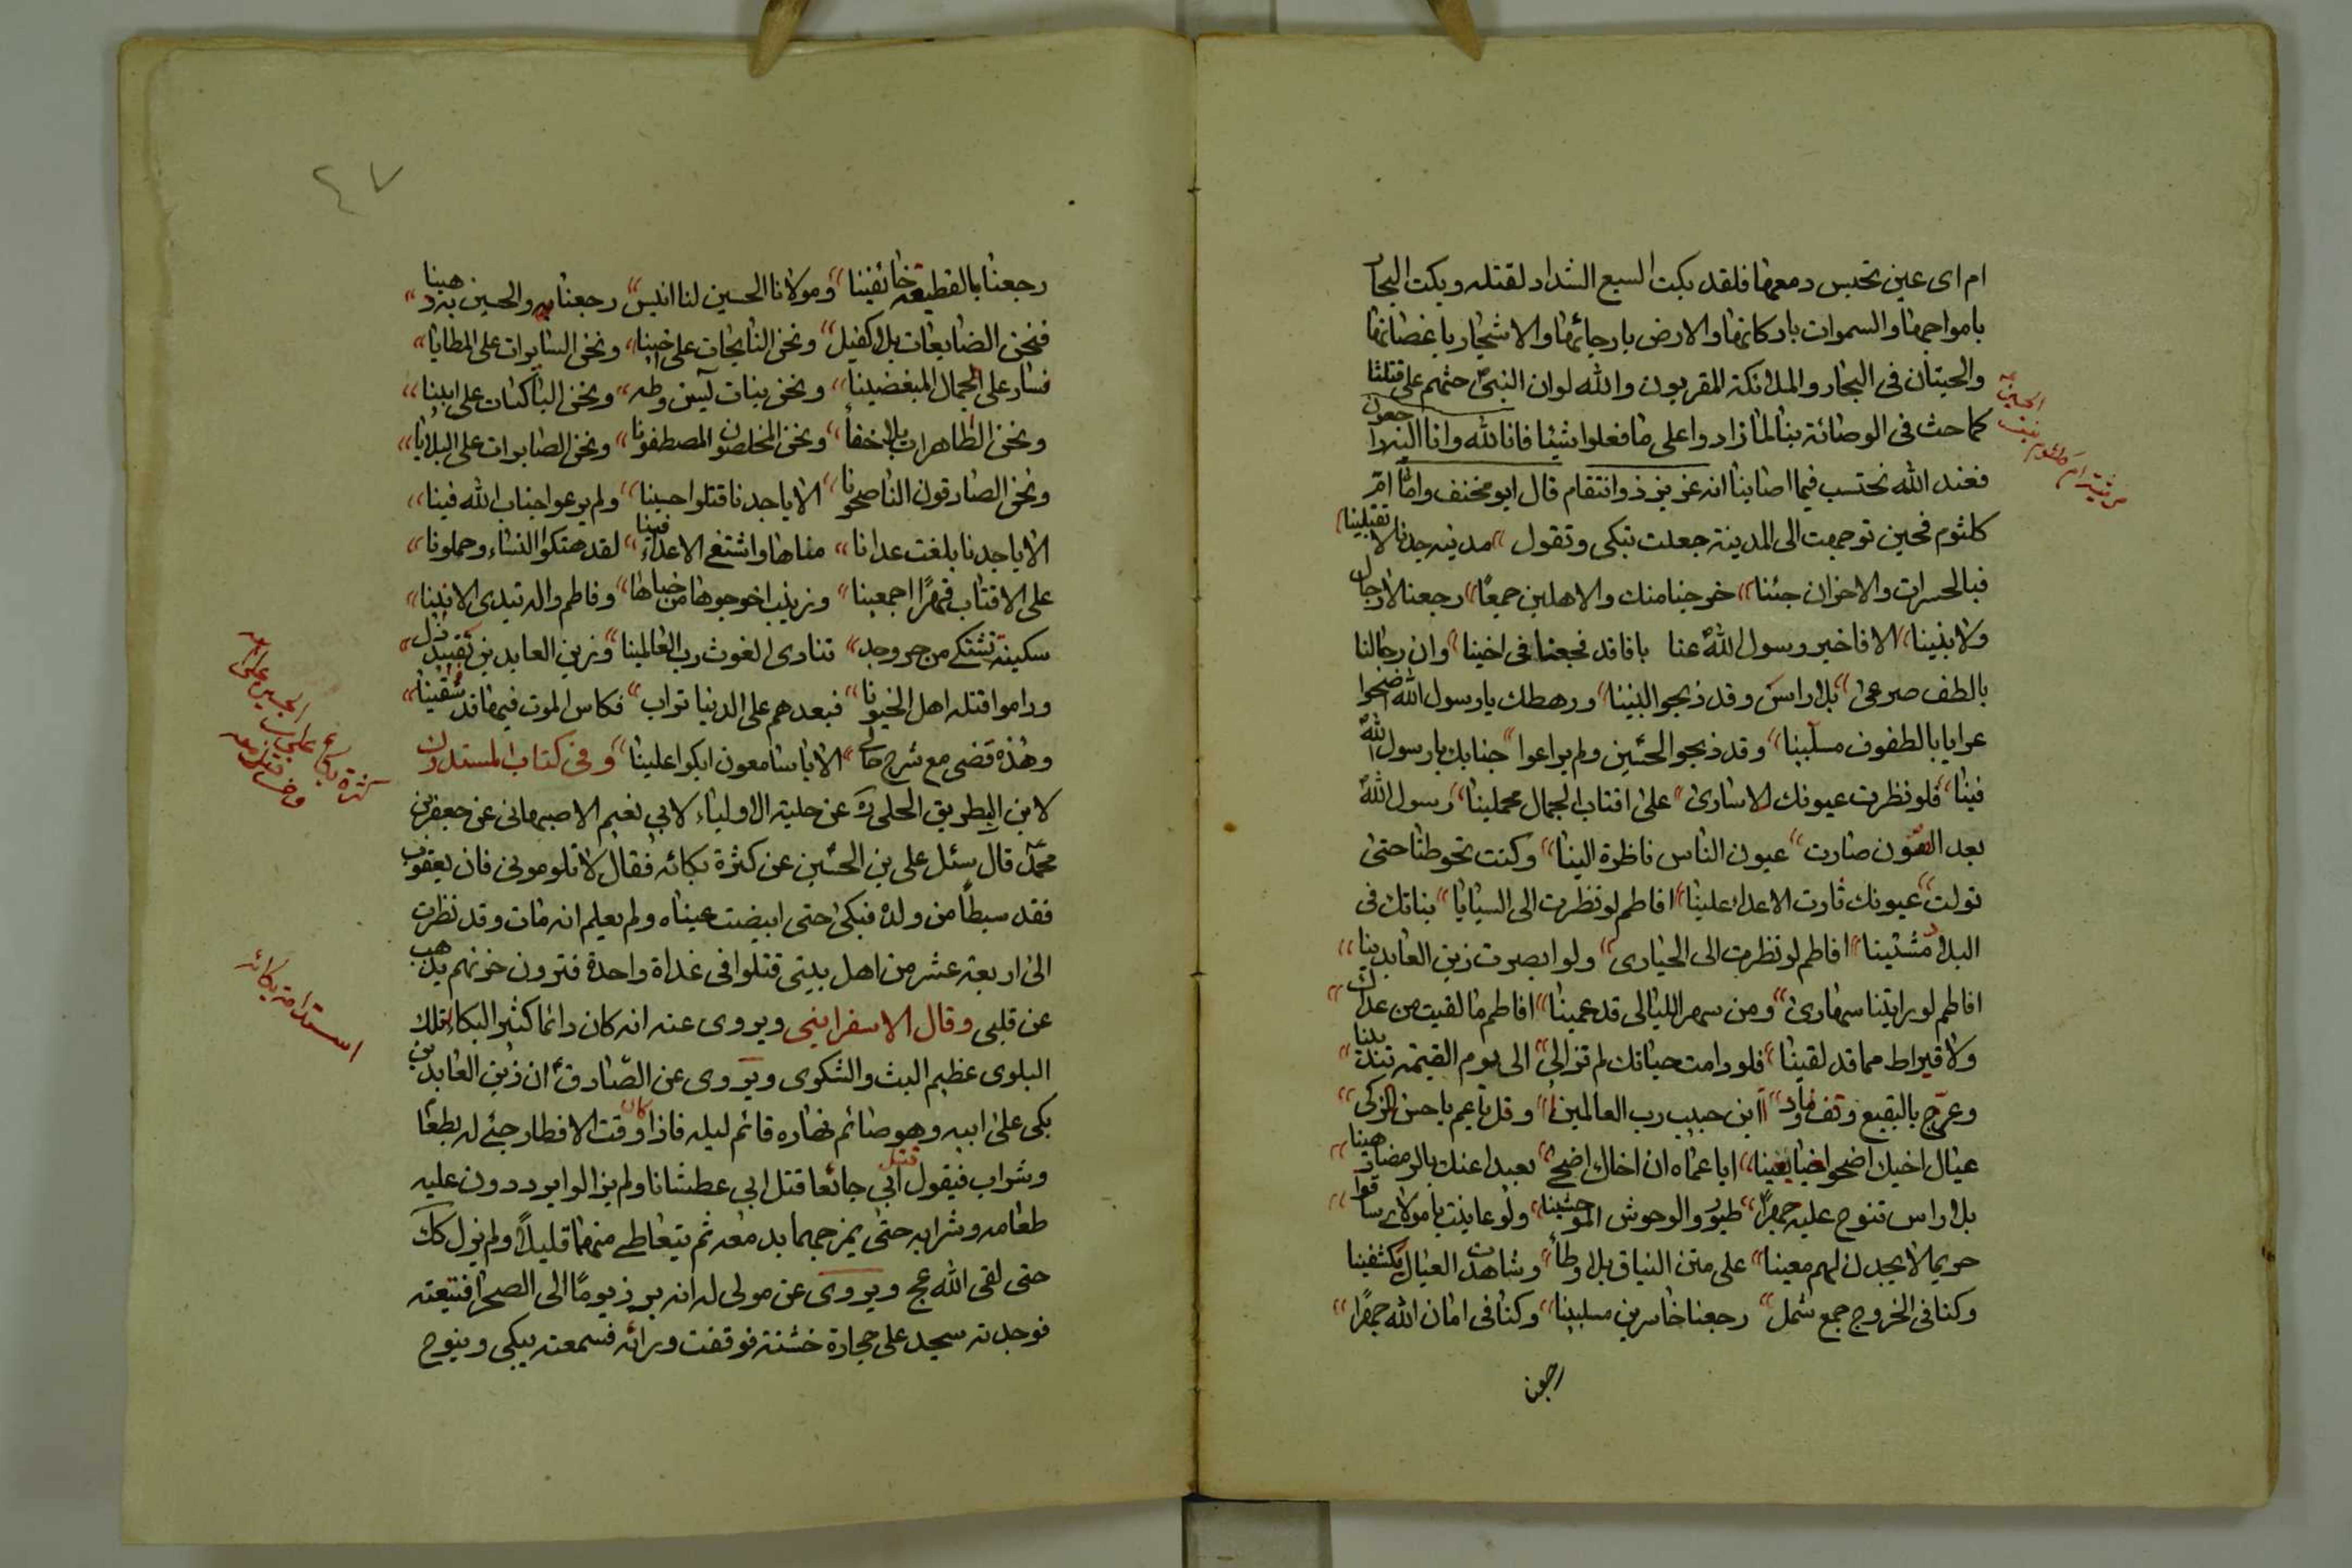 ام اى عين تحبس دمعها فلقد بكت السبع الشداد لقتله وبكت البحار
بامواجها والسموات باركانها والارض بارجائها والاشجار باغصانها
والحيتان فى البحار والملائكة المقربون والله لو ان النبى حثهم على قتلنا
كما حث فى الوصائة بنا لما زادوا على ما فعلوا شيئا فانا لله وانا اليه راجعون
فعند الله نحتسب فيما اصابنا انه عزيز ذو انتقام قال ابو مخنف واما ام
كلثوم فحين توجهت الى المدينة جعلت تبكى وتقول مدينة جدنا لا تقبلينا
فبالحسرات والاحزان جئنا خرجنا منك والاهلين جمعا رجعنا لا رجال
ولا بنينا الا فاخبر رسول الله عنا بانا قد فجعنا فى اخينا وان رجالنا
بالطف صرعى بلا راس وقد ذبحوا البنينا ورهطك يا رسول الله اضحوا
عرايا بالطفوف مسلبينا وقد ذبحوا الحسين ولم يراعوا جنابك يا رسول الله
فينا فلو نظرت عيونك للاسارى على اقتاب الجمال محملينا رسول الله
بعد الصون صارت عيون الناس ناظرة الينا وكنت تحوطنا حتى
تولت عيونك ثارت الاعداء علينا افاطم لو نظرت الى السبايا بناتك فى
البلاد مشتتينا افاطم لو نظرت الى الحيارى ولو ابصرت زين العابدينا
افاطم لو رايتنا سهارى ومن سهر الليالى قد عمينا افاطم ما لقيت من عداك
ولا قيراط مما قد لقينا فلو دامت حياتك لم تزالى الى يوم القيمة تندبينا
وعرج بالبقيع وقف وناد اابن حبيب رب العالمينا وقل يا عم يا حسن الزكى
عيال اخيك اضحوا ضايعينا ايا عماه ان اخاك اضحى بعيدا عنك بالرمضا رهينا
بلا راس تنوح عليه جهرا طيور والوحوش الموحشينا ولو عاينت يا مولاى ساقوا
حريما لا يجدن لهم معينا على متن النياق بلا وطاء وشاهدت العيال مكشفينا
وكنا فى الخروج جمع شمل رجعنا خاسرين مسلبينا وكنا فى امان الله جهرا
رجعنا
الحسين
مرثية ام كلثوم بنت
٤٧
رجعنا بالقطيعة خائفينا ومولانا الحسين لنا انيس رجعنا والحسين به رهينا
فنحن الضايعات بلا كفيل ونحن النايحات على اخينا ونحن السايرات على المطايا
نساد على الجمال المبغضينا ونحن بنات يس وطه ونحن الباكيات على ابينا
ونحن الطاهرات بلا خفاء ونحن المخلصون المصطفونا ونحن الصابرات على البلايا
ونحن الصادقون الناصحونا الا يا جدنا قتلوا حسينا ولم يرعوا جناب الله فينا
الا يا جدنا بلغت عدانا مناها واشتفى الاعداء فينا لقد هتكوا النساء وحملونا
على الاقتاب قهرا اجمعينا وزينب اخرجوها من خباها وفاطم واله تبدى الانينا
سكينة تشتكى من حر وجد تنادى الغوث رب العالمينا وزين العابدين بقيد ذل
وراموا قتله اهل الخيونا فبعدهم على الدنيا تراب فكاس الموت فيها قد سقينا
وهذه قصتى مع شرح حالى الا يا سامعون ابكوا علينا وفى كتاب المستدرك
لابن البطريق الحلى ره عن حلية الاولياء لابى نعيم الاصبهانى عن جعفر بن
محمد قال سئل على بن الحسين عن كثرة بكائه فقال لا تلومونى فان يعقوب
فقد سبطا من ولده فبكى حتى ابيضت عيناه ولم يعلم انه مات وقد نظرت
الى اربعة عشر من اهل بيتى قتلوا فى غداة واحدة فترون حزنهم يذهب
عن قلبى وقال الاسفراينى ويروى عنه انه كان دائما كثير البكاء لتلك
البلوى عظيم البث والشكوى ويروى عن الصادق ان زين العابدين
بكى على ابيه وهو صائم نهاره قائم ليله فاذا كان وقت الافطار جئ له بطعام
وشراب فيقول قتل ابى جائعا قتل ابى عطشانا ولم يزالوا يرددون عليه
طعامه وشرابه حتى يمزجهما بدمعه ثم يتعاطى منهما قليلا ولم يزل كك
حتى لقى الله عج ويروى عن مولى له انه برز يوما الى الصحرا فتبعته
فوجدته سجد على حجارة خشنة فوقفت ورائه فسمعته يبكى وينوح
استدامة بكائه